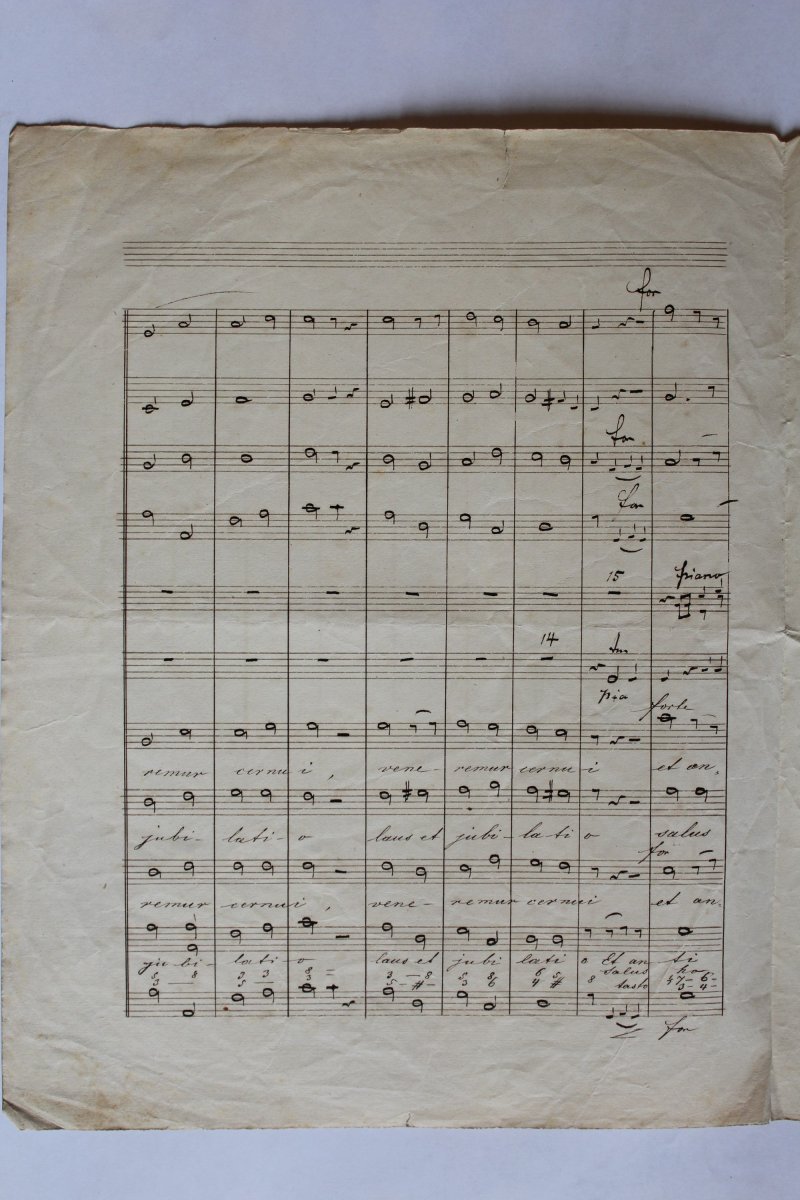 for
for
for
15 piano
14
pia
forte
remur cernu i, vene- remur cernu i et an,
jubi- lati- o laus et jubi- lati o salus
for
remur cernui, vene- remur cernui et an-
ju bi- lati- o laus et jubi lati o Et an- ti
salus ho
5 8 3 3 8 = 3 - 8 5 8 6 5 7- 6-
3 - 5 - 3 5 - # - 3 6 4 # 8 tasto 4 5- 4-
for